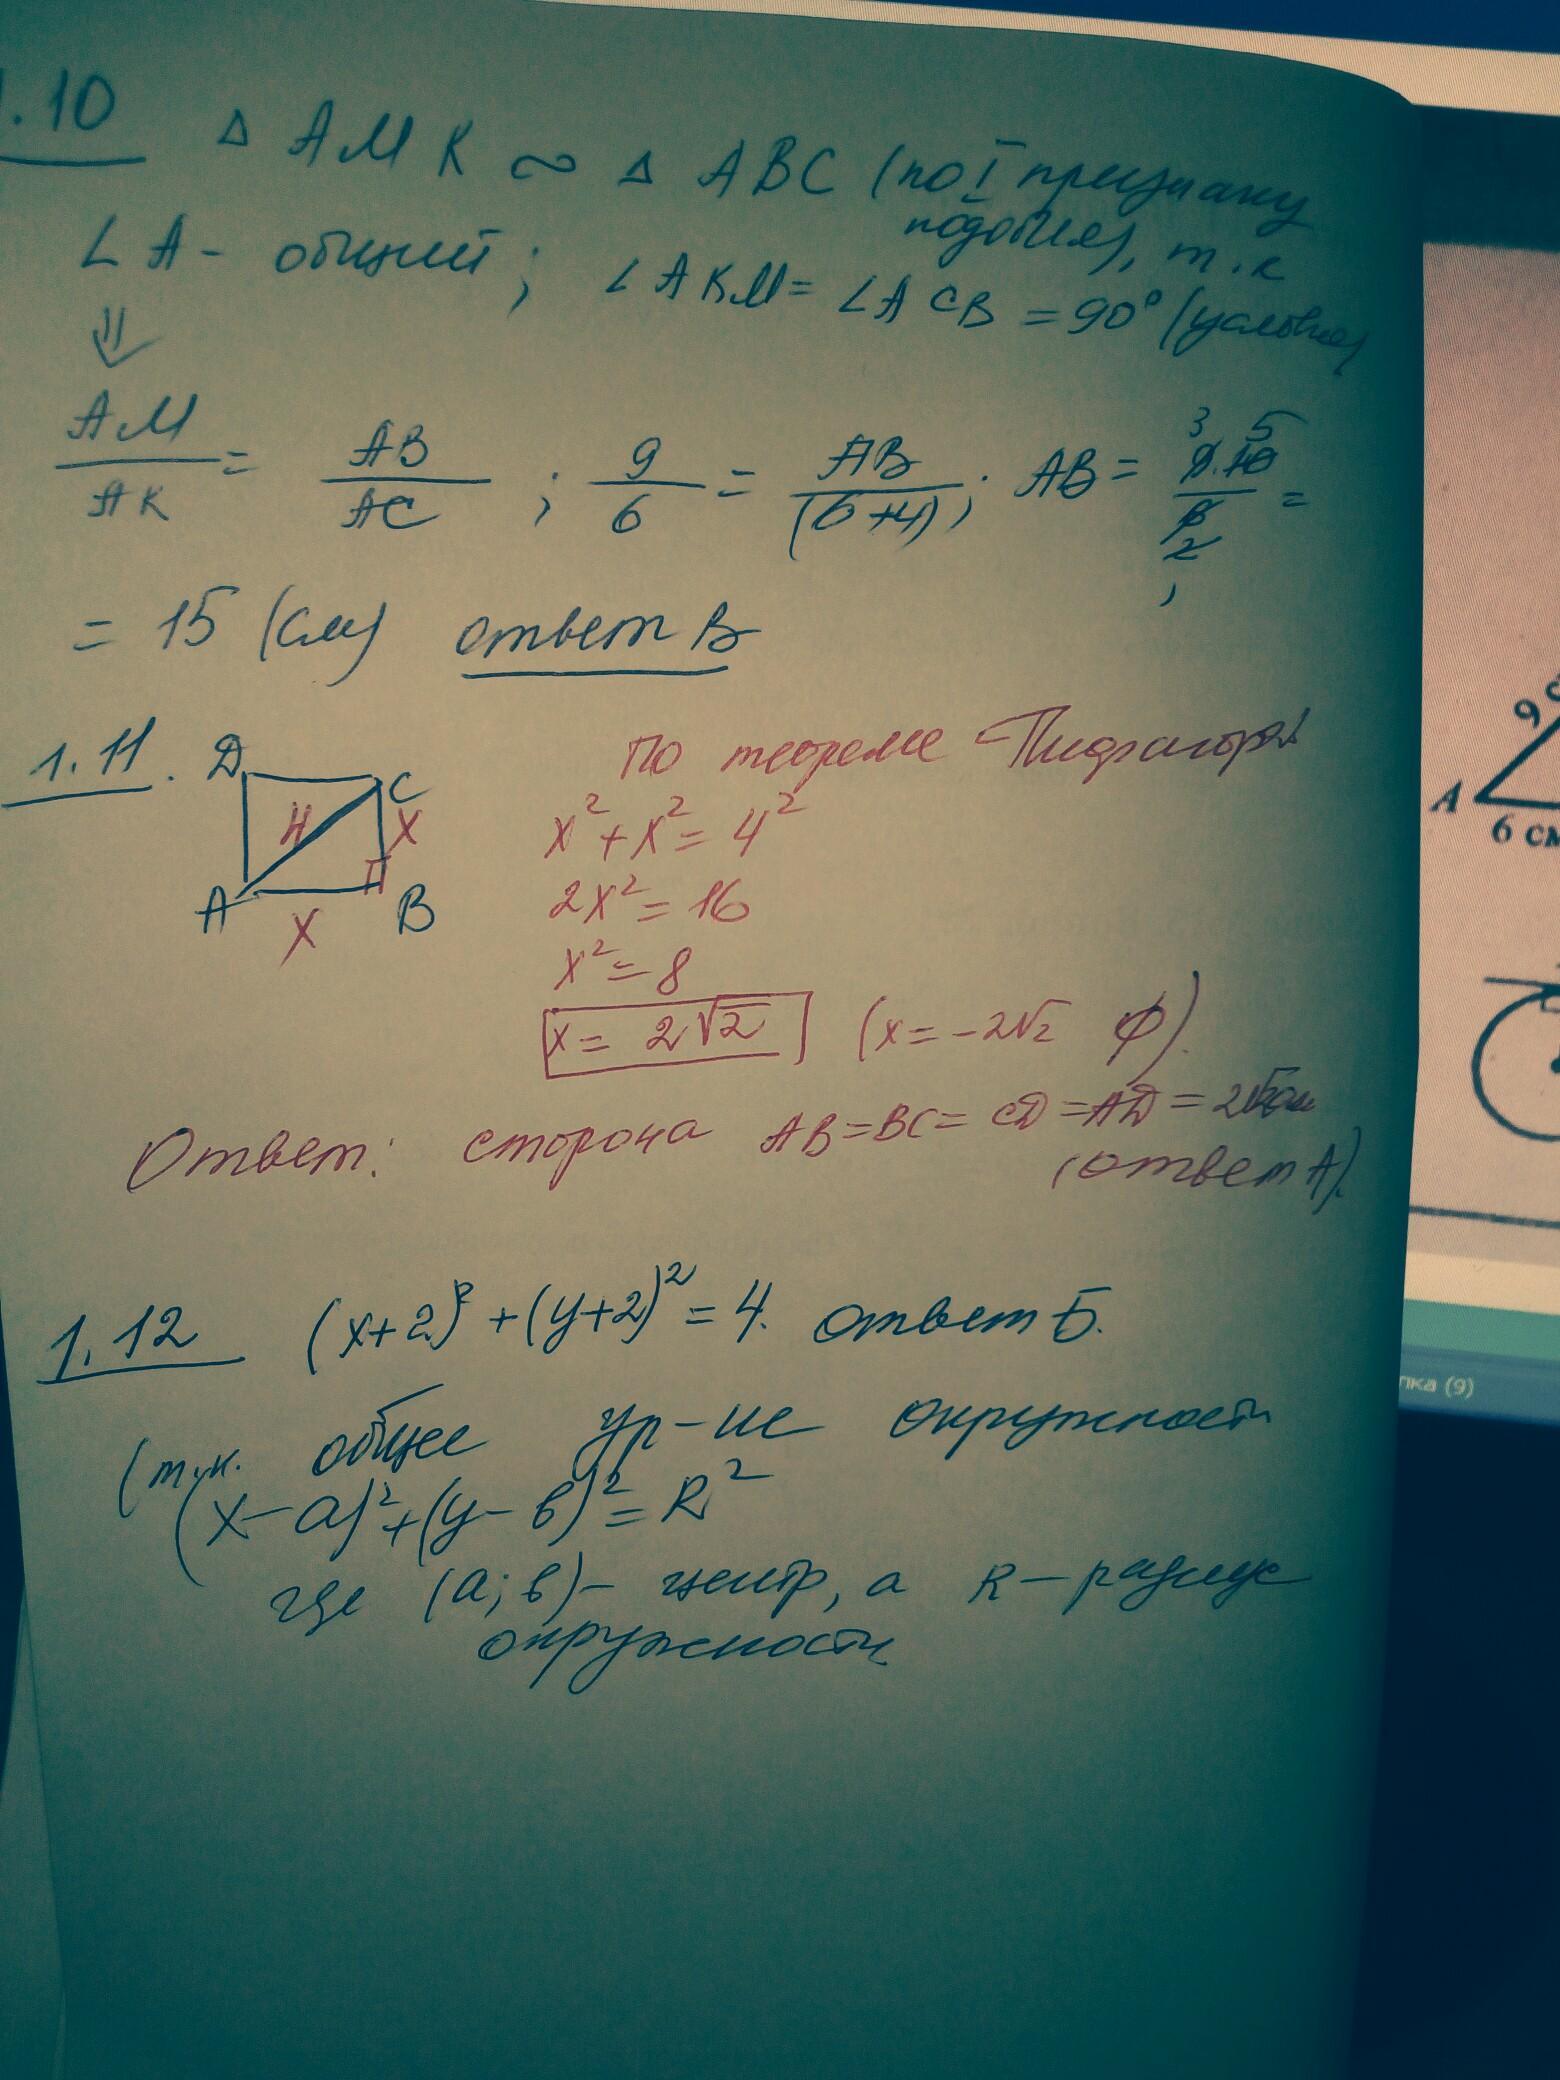 1.10 Δ AMK ∾ Δ ABC (по I признаку
подобия), т.к
∠A - общий; ∠AKM = ∠ACB = 90° (условие)
⇓
AM/AK = AB/AC ; 9/6 = AB/(6+4); AB = 9·10/6 =
3 5
2
= 15 (см) ответ В
1.11. D C По теореме Пифагора
4 x x² + x² = 4²
A B 2x² = 16
x x² = 8
x = 2√2 (x = -2√2 ∅).
Ответ: сторона AB = BC = CD = AD = 2√2 см
(ответ А).
1.12 (x+2)² + (y+2)² = 4. ответ Б.
(т.к. общее ур-ие окружности
(x-a)² + (y-b)² = R²
где (a; b) - центр, а R - радиус
окружности
9 c
A
6 см
пка (9)